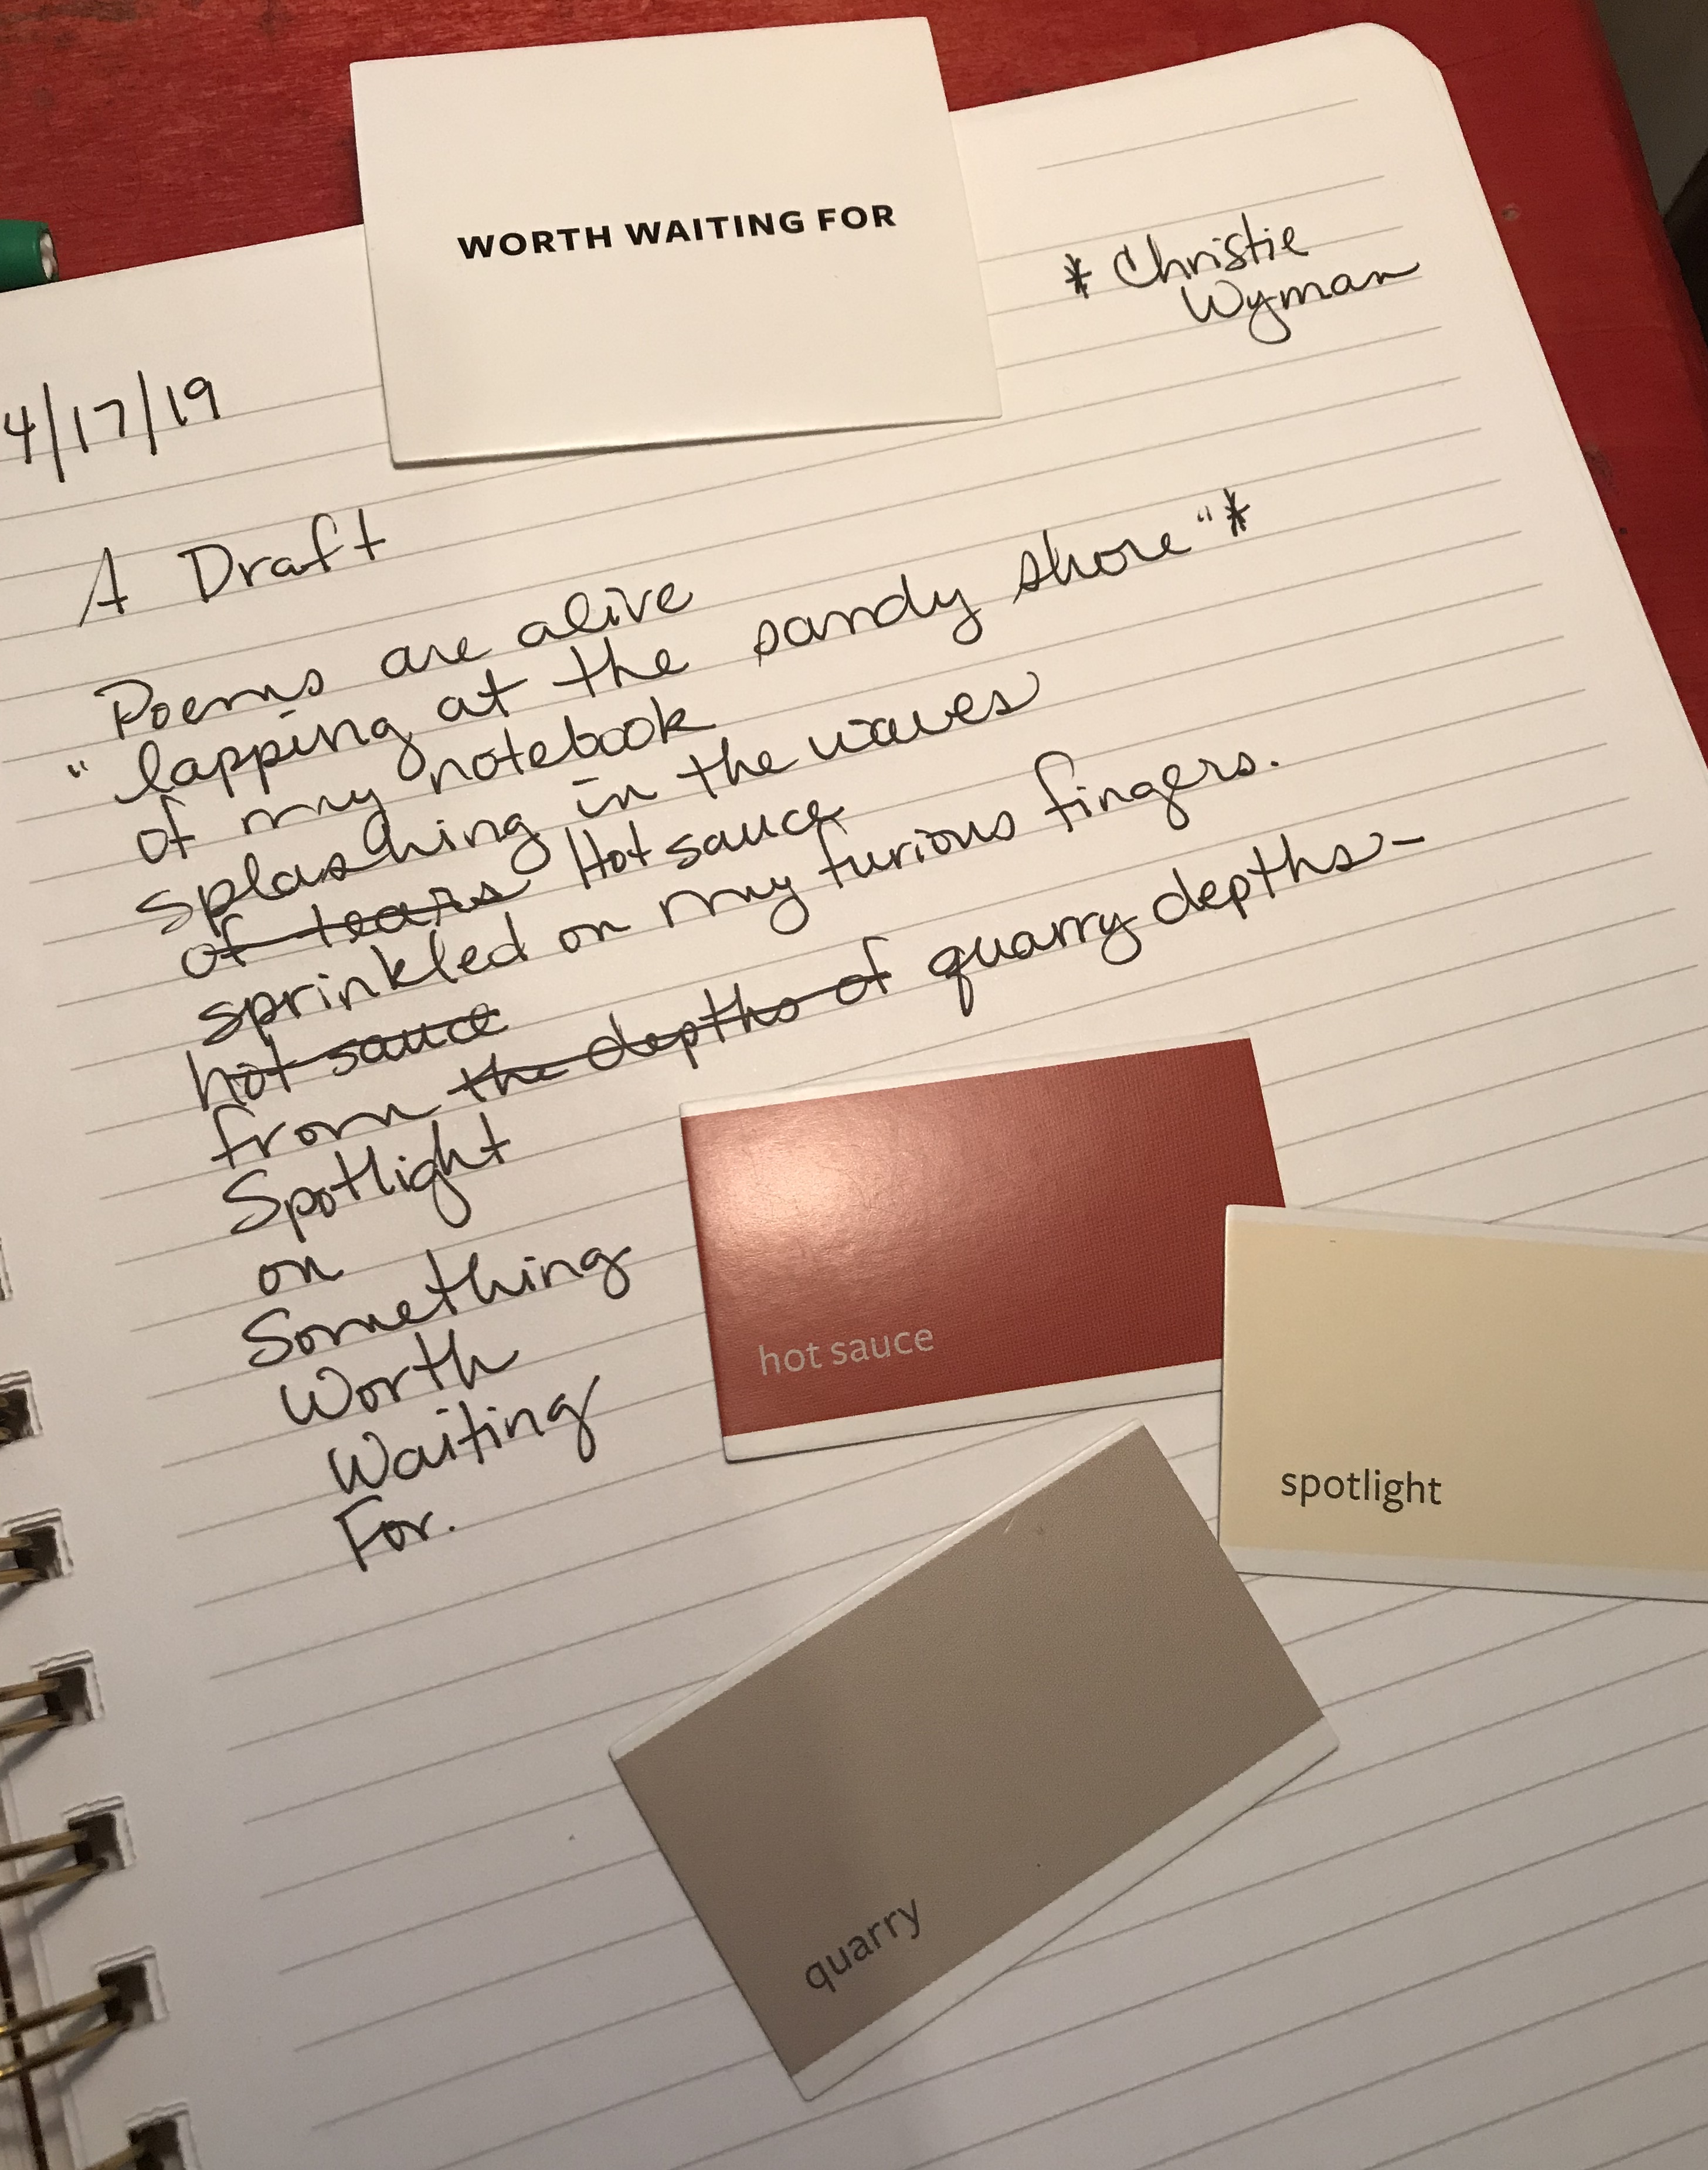 WORTH WAITING FOR
* Christie
Wyman
4/17/19
A Draft
Poems are alive
"lapping at the sandy shore"*
of my notebook
splashing in the waves
of tears Hot sauce
sprinkled on my furious fingers.
hot sauce
from the depths of quarry depths-
Spotlight
on
Something
Worth
Waiting
For.
hot sauce
spotlight
quarry